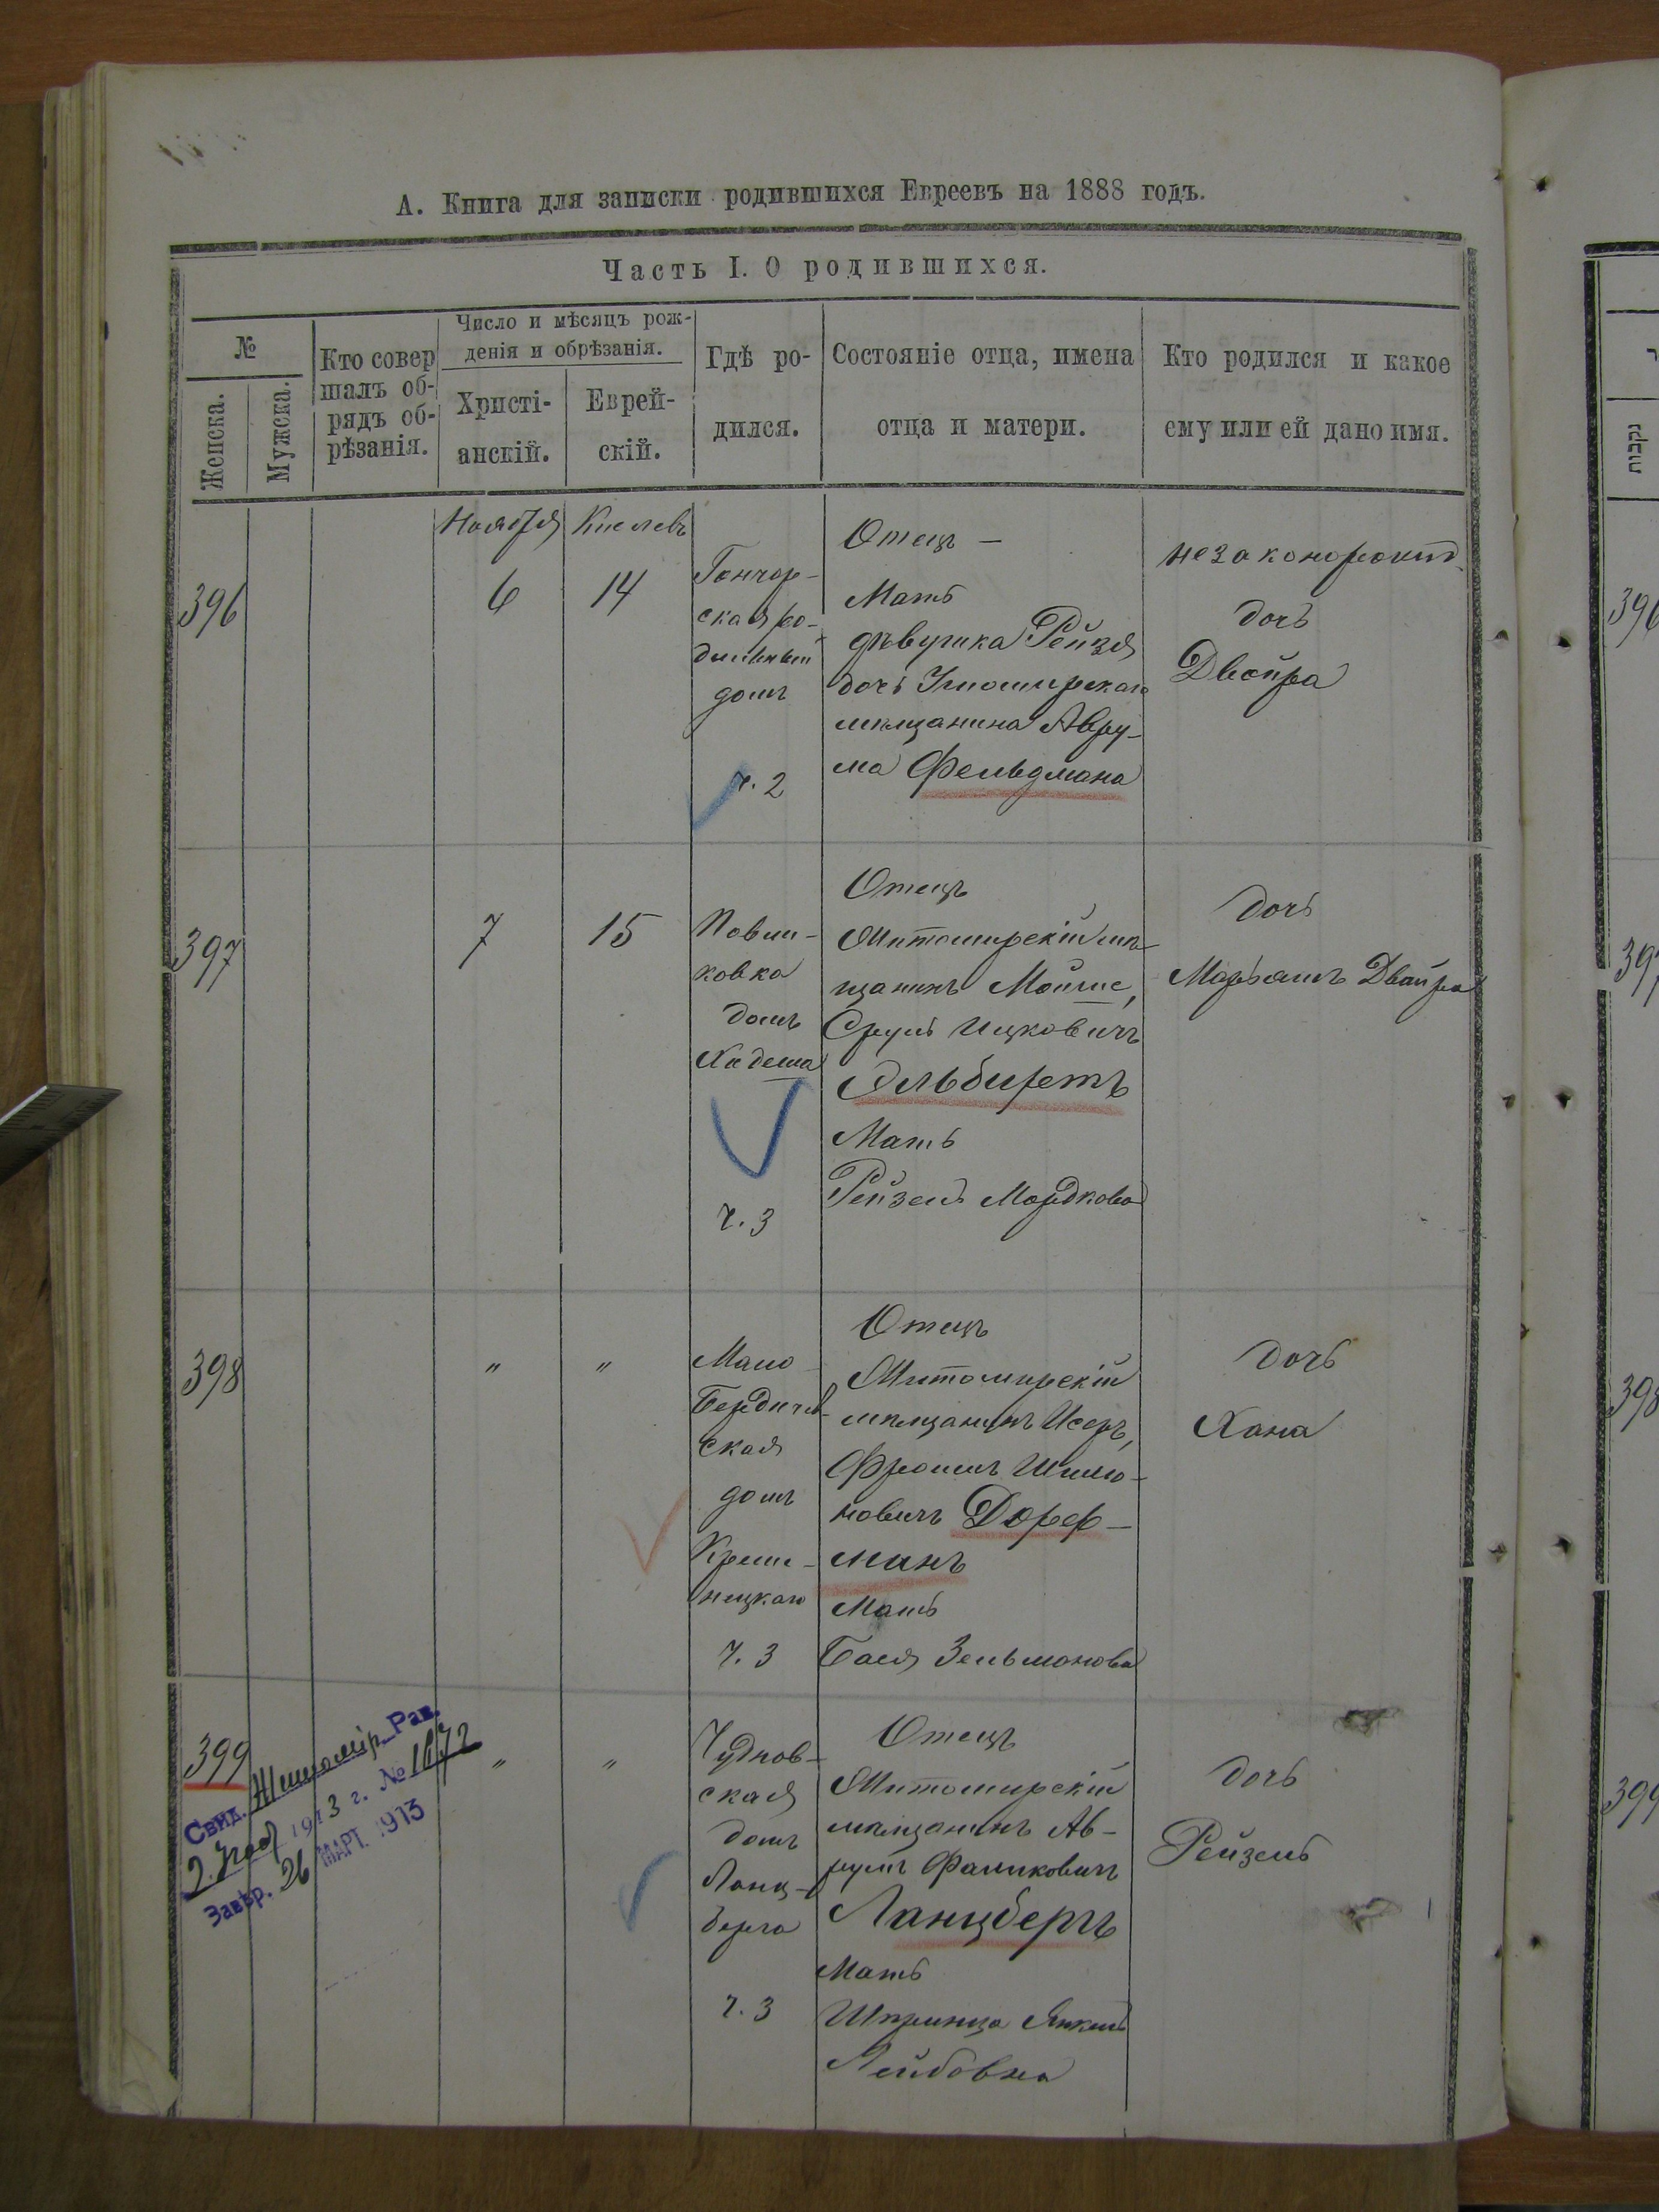 А. Книга для записки родившихся Евреевъ на 1888 годъ.
Часть I. О родившихся.
№
Женска.
Мужска.
Кто совер
шалъ об-
рядъ об-
рѣзанія.
Число и мѣсяцъ рож-
денія и обрѣзанія.
Христі-
анскій.
Еврей-
скій.
Гдѣ ро-
дился.
Состояніе отца, имена
отца и матери.
Кто родился и какое
ему или ей дано имя.
Ноября
Кислевъ
396
6
14
Гончар-
ская ро-
дильный
домъ
ч. 2
Отецъ —
Мать
дѣвушка Рейзя
дочь Житомирскаго
мѣщанина Авру-
ма Фельдмана
незаконорожд.
дочь
Двойра
397
7
15
Павли-
ковка
домъ
ч. 3
Отецъ
Житомирскій мѣ-
щанинъ Мойше,
Сруль Ицковичъ
Эльбиретъ
Мать
Рейзель Мордкова
дочь
Марьямъ Двойра
398
"
"
Мало
Бердичев-
ская
домъ
Креме-
нецкаго
ч. 3
Отецъ
Житомирскій
мѣщанинъ Исеръ,
Фроимъ Шимо-
новичъ Дорф-
манъ
Мать
Бася Зельманова
дочь
Хана
399
"
"
Чуднов-
ская
домъ
Ланц-
берга
ч. 3
Отецъ
Житомирскій
мѣщанинъ Ав-
румъ Фаликовичъ
Ланцбергъ
Мать
Шпринца Янкель
Лейбовна
дочь
Рейзель
Свид. Житомір. Рав.
1913 г. № 1672
Завѣр. 26 МАРТ. 1913
נקבות
396
397
398
399